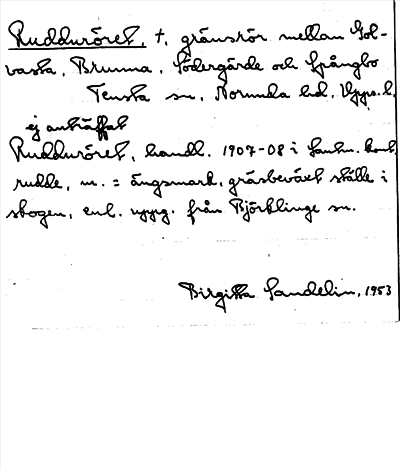 Rudduröret, †, gränsrör mellan Gol-
vasta, Brunna, Södergärde och Spångbo
Tensta sn, Norunda hd. Upps. l.
ej anträffat
Rudduröret, handl. 1907-08 i Lantm. kont.
rudde, m. = ängsmark, gräsbeväxt ställe i
skogen, enl. uppg. från Björklinge sn.
Birgitta Sandelin, 1953